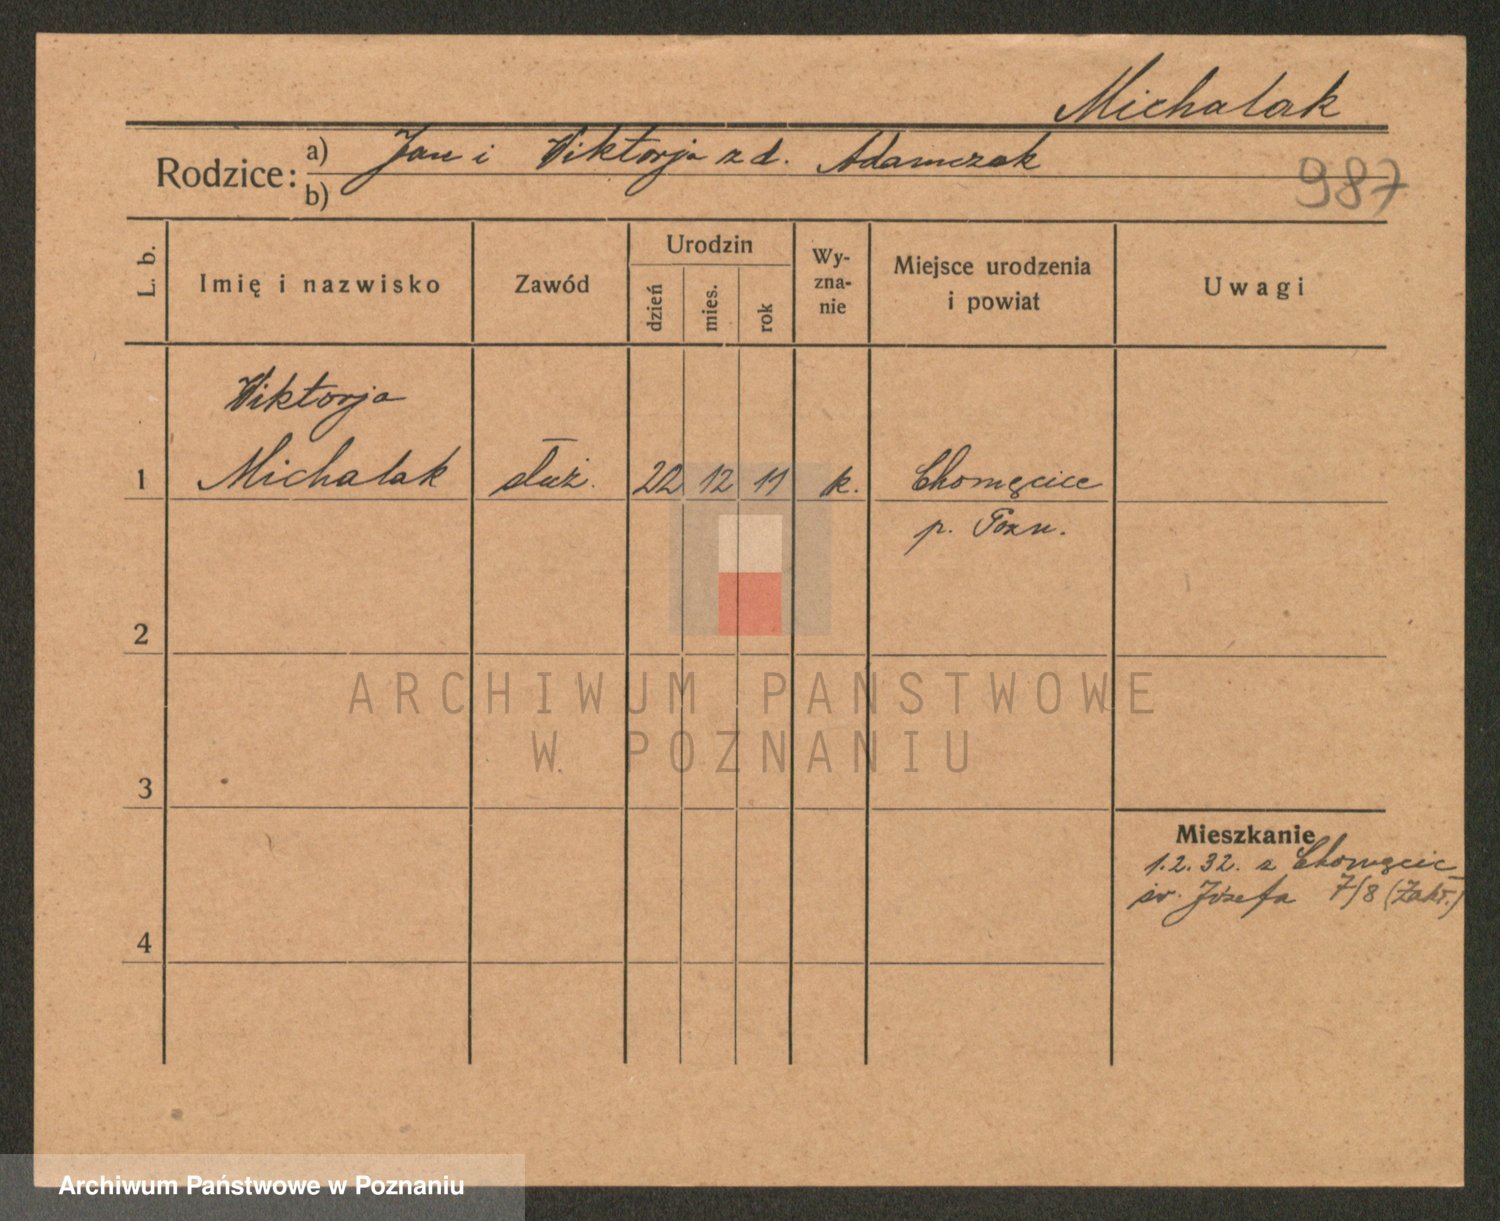 Michalak
Rodzice: a) Jan i Wiktorja z d. Adamczak
b)
987
L. b.
Imię i nazwisko
Zawód
Urodzin
dzień
mies.
rok
Wy-
zna-
nie
Miejsce urodzenia
i powiat
Uwagi
Wiktorja
1 Michalak służ. 22 12 11 k. Chomęcice
p. Pozn.
2
ARCHIWUM PANSTWOWE
W POZNANIU
3
Mieszkanie
1.2.32. z Chomęcic
św. Józefa 7/8 (Zakł.)
4
Archiwum Państwowe w Poznaniu